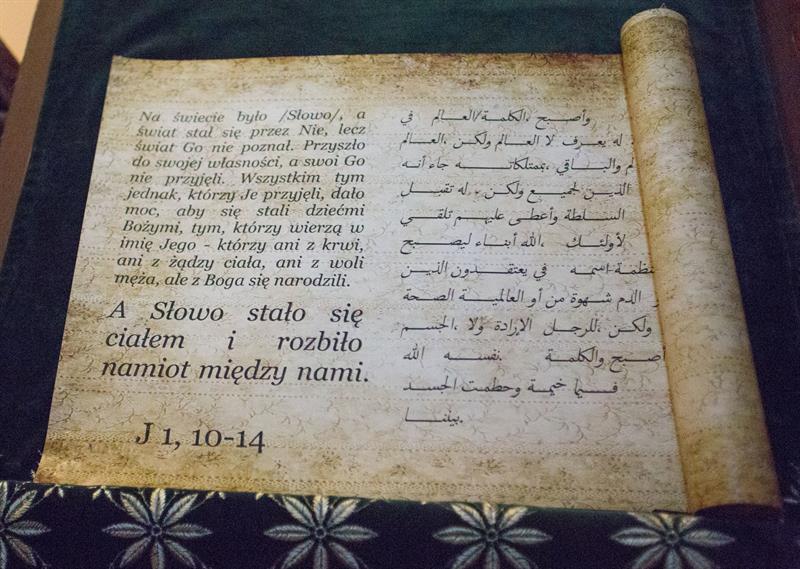 Na świecie było /Słowo/, a
świat stał się przez Nie, lecz
świat Go nie poznał. Przyszło
do swojej własności, a swoi Go
nie przyjęli. Wszystkim tym
jednak, którzy Je przyjęli, dało
moc, aby się stali dziećmi
Bożymi, tym, którzy wierzą w
imię Jego - którzy ani z krwi,
ani z żądzy ciała, ani z woli
męża, ale z Boga się narodzili.
A Słowo stało się
ciałem i rozbiło
namiot między nami.
J 1, 10-14
وأصبح ،الكلمة/العالم في
له يعرف لا العالم ولكن ،العالم
والباقي ،بممتلكاته جاء أنه
الذين لجميع ولكن . له تقبل
السلطة وأعطى عليهم تلقي
لأولئك ،الله أبناء ليصبح
اسمه في يعتقدون الذين
الدم شهوة من أو العالمية الصحة
ولكن ،للرجل الإرادة ولا ،الجسم
والكلمة .نفسه الله
فيها خيمة وحطمت الجسد
.بيننا